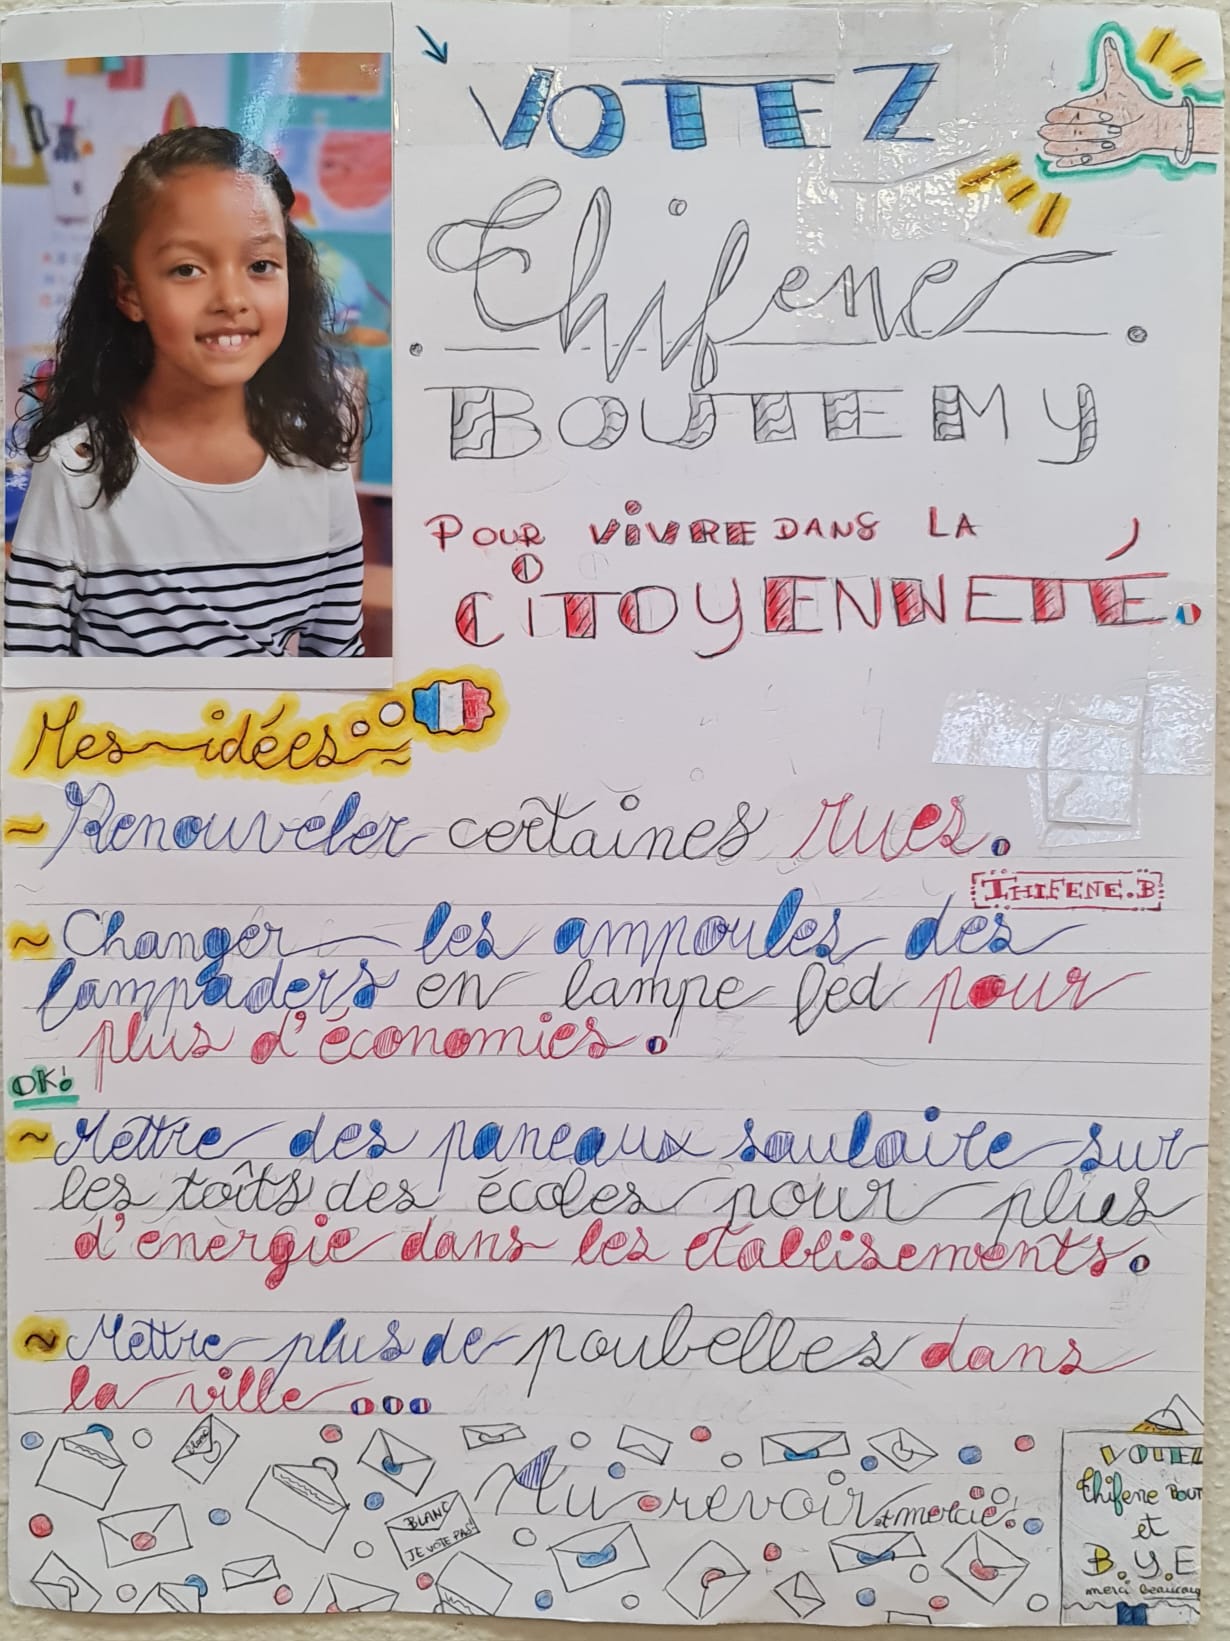 VOTEZ
Thifene
BOUTEMY
POUR VIVRE DANS LA
CITOYENNETÉ.
Mes idées
~ Renouveler certaines rues.
THIFENE.B
~ Changer les ampoules des
lampaders en lampe led pour
plus d'économies.
OK!
~ Mettre des paneaux saulaire sur
les toîts des écoles pour plus
d'énergie dans les établisements.
~ Mettre plus de poubelles dans
la ville...
BLANC
JE VOTE PAS!
Au revoir et mercie!
VOTEZ
Thifene BOUT
et
B.Y.E
merci beaucoup